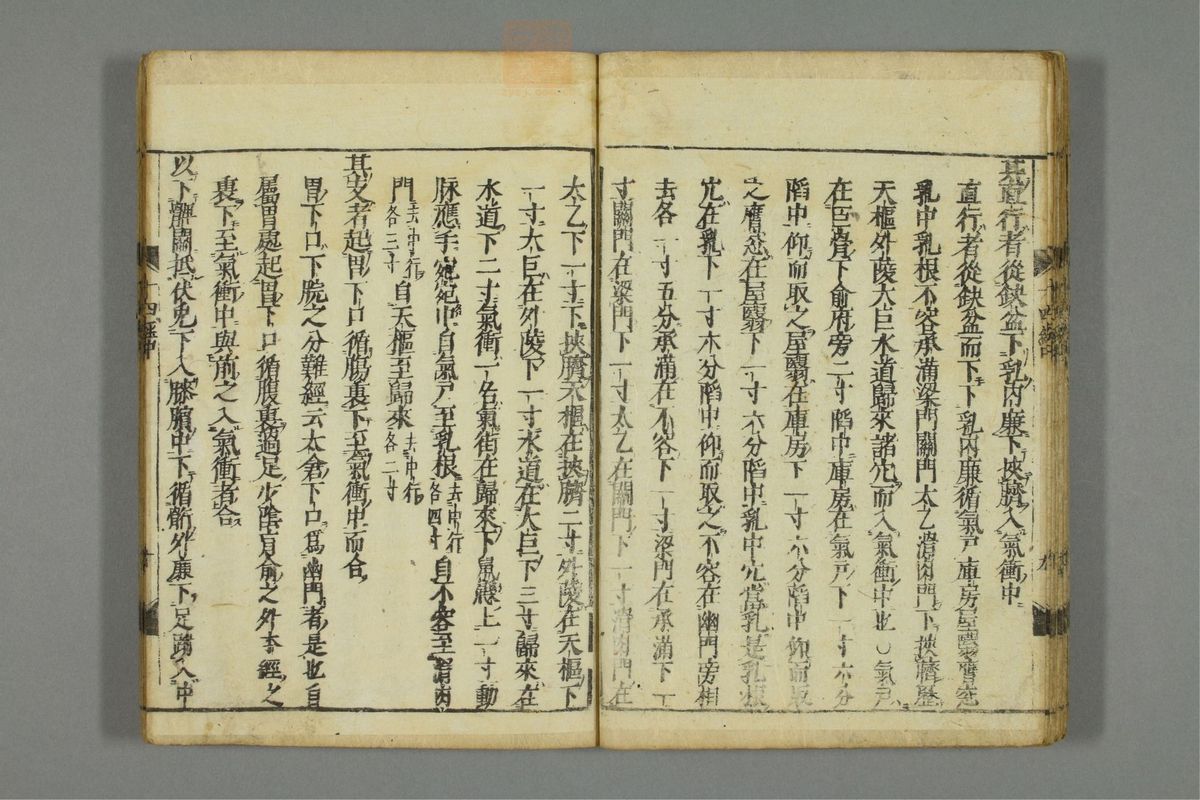 其直行者從缺盆下乳內廉下挾臍入氣衝中
直行者從缺盆而下下乳內廉循氣戶庫房屋翳膺窓
乳中乳根不容承滿梁門關門太乙滑肉門下挾臍歷
天樞外陵大巨水道歸來諸穴而入氣衝中也○氣戶
在巨骨下俞府旁二寸陷中庫房在氣戶下一寸六分
陷中仰而取之屋翳在庫房下一寸六分陷中仰而取
之膺窓在屋翳下一寸六分陷中乳中穴當乳是乳根
穴在乳下一寸六分陷中仰而取之不容在幽門旁相
去各一寸五分承滿在不容下一寸梁門在承滿下一
寸關門在梁門下一寸太乙在關門下一寸滑肉門在
太乙下一寸下挾臍天樞在挾臍二寸外陵在天樞下
一寸大巨在外陵下一寸水道在大巨下三寸歸來在
水道下二寸氣衝一名氣街在歸來下鼠鼷上一寸動
脉應手宛宛中自氣戶至乳根去中行各四寸自不容至滑肉
門去中行各三寸自天樞至歸來去中行各二寸
其支者起胃下口循腸裏下至氣衝中而合
胃下口下脘之分難經云太倉下口爲幽門者是也自
屬胃處起胃下口循腹裏過足少陰肓俞之外本經之
裏下至氣衝中與前之入氣衝者合
以下髀關抵伏兎下入膝臏中下循䯒外廉下足跗入中
十四經中
十四經中
九